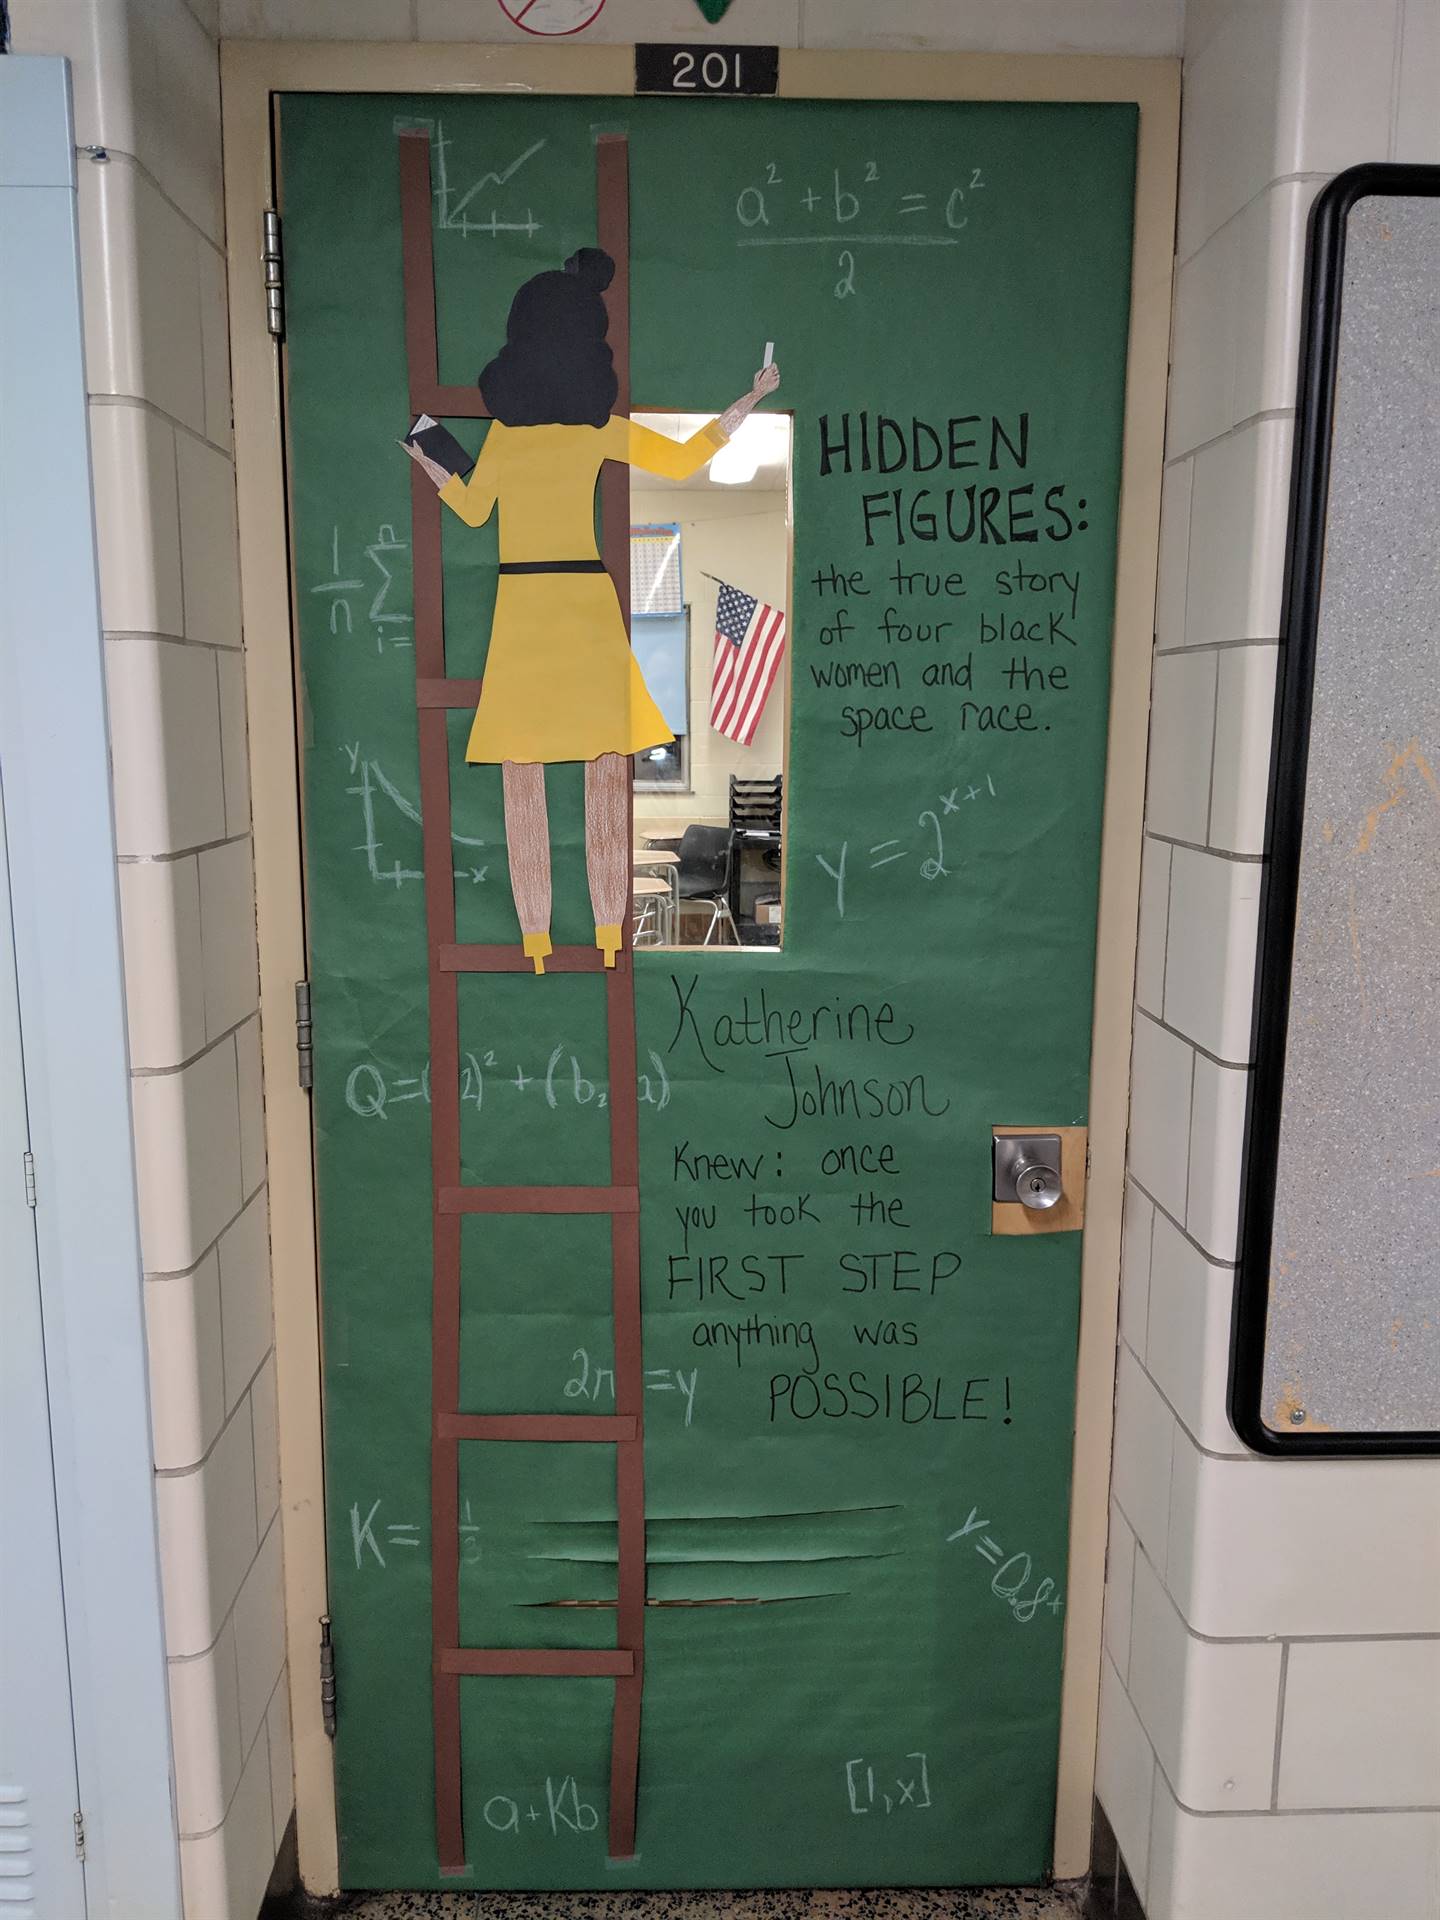 201
a² + b² = c²
2
HIDDEN
FIGURES:
the true story
of four black
women and the
space race.
1
n
n
Σ
i=
y
x
y = 2ˣ⁺¹
Katherine
Johnson
Knew: once
you took the
FIRST STEP
anything was
POSSIBLE!
Q=( 2)² + (b₂ a)
2n =y
K= 1
3
Y=0.8+
a+Kb
[1,x]